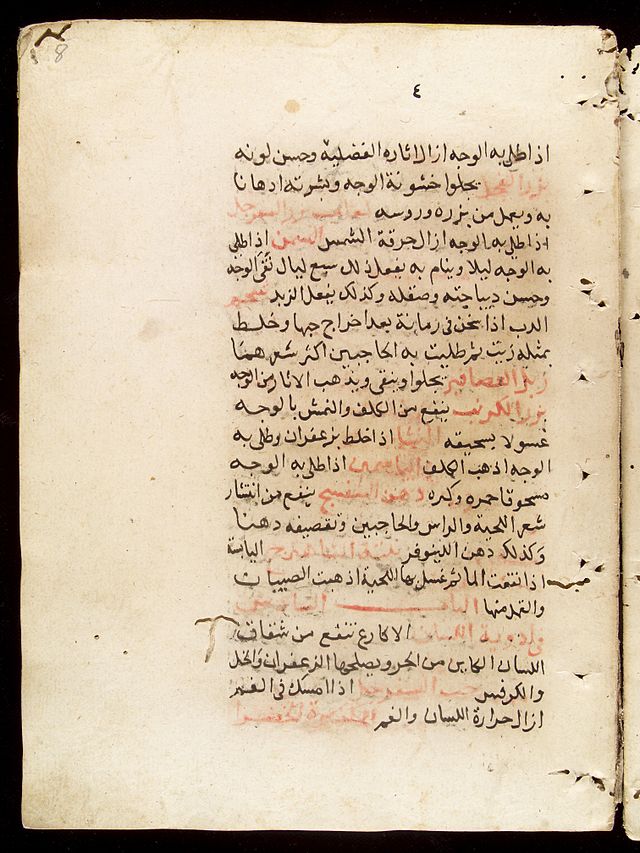 8
٤
اذا طلى به الوجه ازال اثاره الفضلية وحسن لونه
بزر الفجل يجلوا خشونة الوجه وبشرته ادهانا
به ويعمل من بزره وروسه لعاب بزر السفرجل
اذا طلى به الوجه ازال حرقة الشمس السمن اذا طلى
به الوجه ليلا وينام به يفعل ذلك سبع ليال نقى الوجه
وحسن ديباجته وصقله وكذلك يفعل الزبد شحم
الدب اذا سخن فى رمانة بعد اخراج حبها وخلط
بمثله زيت ثم طليت به الحاجبين اكثر شعرهما
زبل العصافير يجلوا وينقى ويذهب الاثار من الوجه
بزر الكرنب ينفع من الكلف والنمش بالوجه
غسولا بسحيقه النشا اذا خلط بزعفران وطلى به
الوجه اذهب الكلف الياسمين اذا طلى به الوجه
مسحوقا حمره وكبره دهن البنفسج ينفع من انتشار
شعر اللحية والراس والحاجبين وتقصيفه دهنا
وكذلك دهن اللينوفر اليابسة
اذا انتقعت الما ثم غسل بها اللحية اذهبت الصيبان
والقمل منها الباب
فى ادوية اللسان الاكارع تنفع من شقاق
اللسان الكاين من الحر ويصلحها الزعفران والخل
والكرفس حب السفرجل اذا امسك فى الفم
ازال حرارة اللسان والفم